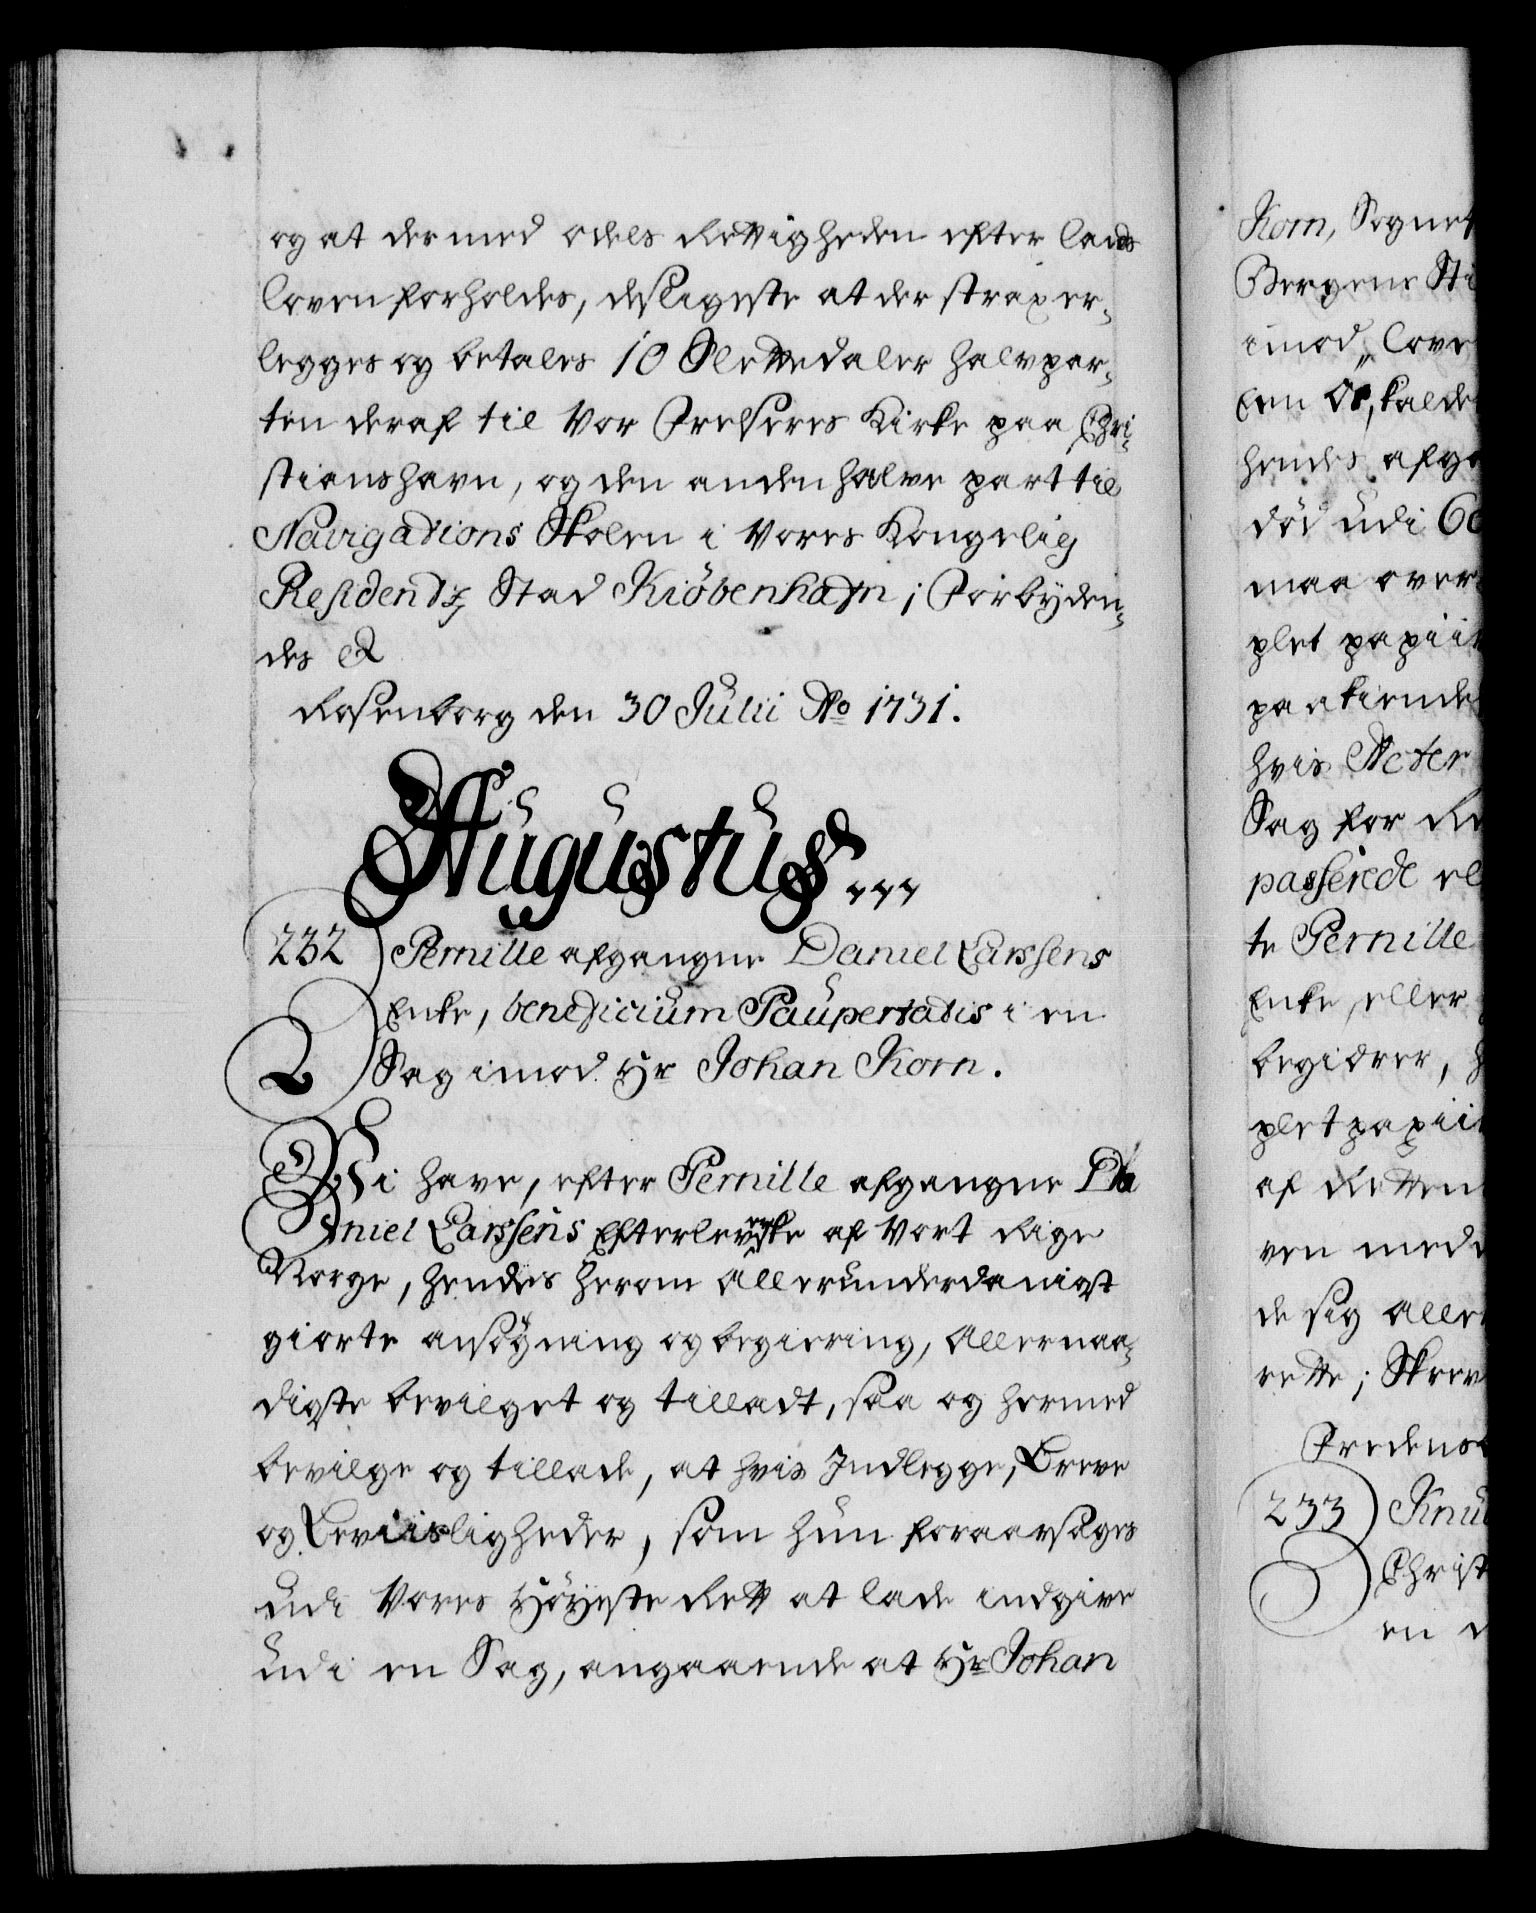 og at dermed odels Rettigheden efter lands
loven forholdes, desligeste at der strax er-
legges og betales 10 Slettedaler halvpar-
ten deraf til Vor Frelseres Kirke paa Chri-
stianshavn, og den anden halve part til
Navigations Skolen i Vores Kongelig
Residentz Stad Kiöbenhafn; Forbyden-
des &
Rosenborg den 30 Julii Ao 1731.
Augustus
232 Pernille afgangne Daniel Larssens
Enke, beneficium Paupertatis i en
Sag imod Hr Johan Korn.
Wi have, efter Pernille afgangne Da
niel Larssens Efterleverske af Vort Rige
Norge, hendes herom allerunderdanigst
giorte ansøgning og begiering, allernaa-
digste bevilget og tilladt, saa og hermed
bevilge og tillade, at hvis Indlegge, Breve
og Beviisligheder, som hun foraarsages
udi Vores Höyeste Rett at lade indgive
udi en Sag, angaaende at Hr Johan
Korn, Sognet
Bergens Sti
imod love
een kalde
hendes afga
død udi
maa over
plet papiir
paakiende
hvis Acter
Sag for
passerede el
te Pernille
Enke, eller
begiærer,
plet papiir
af Retten
ven med
de sig aller
rette; Skrev
Fredens
233 Knu
Christ
en